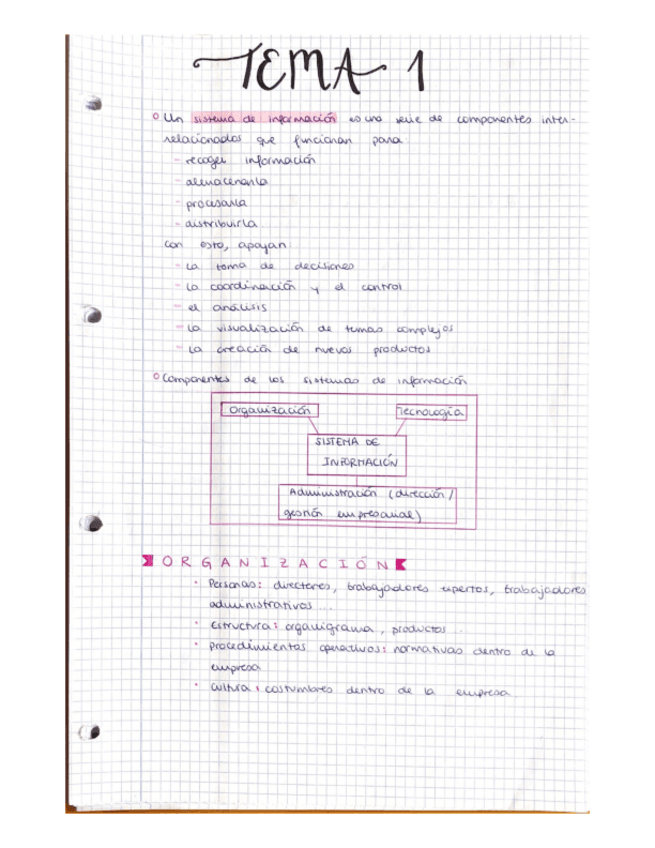 TEMA 1
Un sistema de información es una serie de componentes inter-
relacionados que funcionan para
- recoger información
- almacenarla
- procesarla
- distribuirla
con esto, apoyan
- la toma de decisiones
- la coordinación y el control
- el análisis
- la visualización de temas complejos
- la creación de nuevos productos
Componentes de los sistemas de información
Organización
Tecnología
SISTEMA DE
INFORMACIÓN
Administración (dirección /
gestión empresarial)
ORGANIZACIÓN
· Personas: directores, trabajadores expertos, trabajadores
administrativos...
· estructura: organigrama, productos...
· procedimientos operativos: normativas dentro de la
empresa
· cultura: costumbres dentro de la empresa